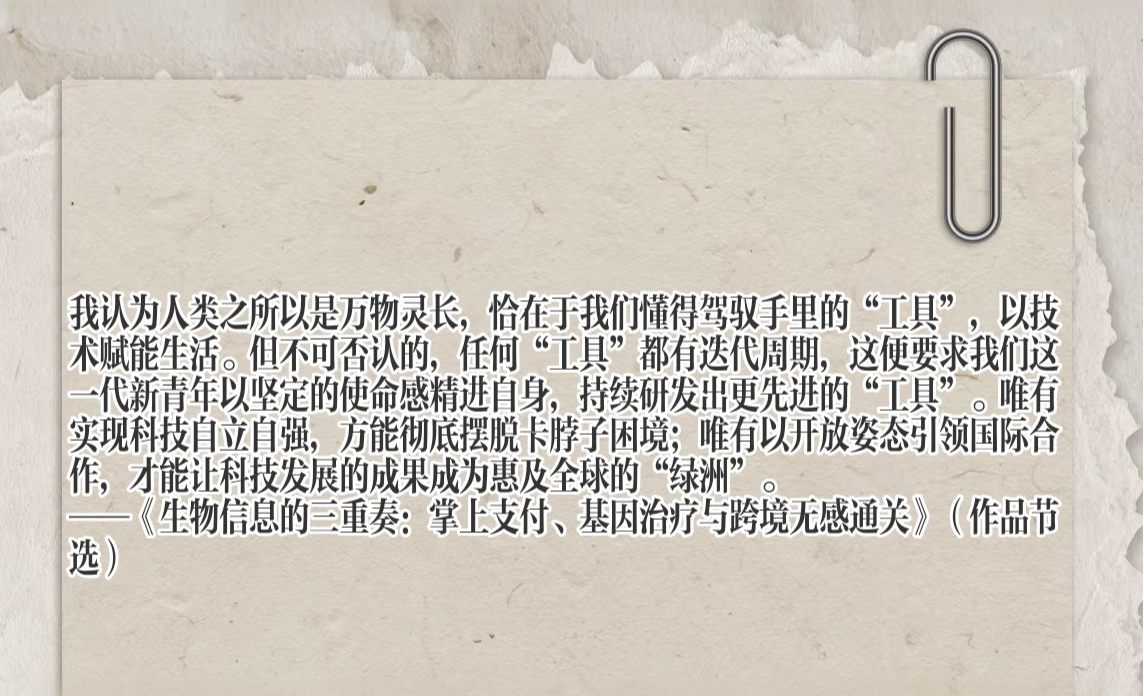 我认为人类之所以是万物灵长，恰在于我们懂得驾驭手里的“工具”，以技
术赋能生活。但不可否认的，任何“工具”都有迭代周期，这便要求我们这
一代新青年以坚定的使命感精进自身，持续研发出更先进的“工具”。唯有
实现科技自立自强，方能彻底摆脱卡脖子困境；唯有以开放姿态引领国际合
作，才能让科技发展的成果成为惠及全球的“绿洲”。
——《生物信息的三重奏：掌上支付、基因治疗与跨境无感通关》（作品节
选）